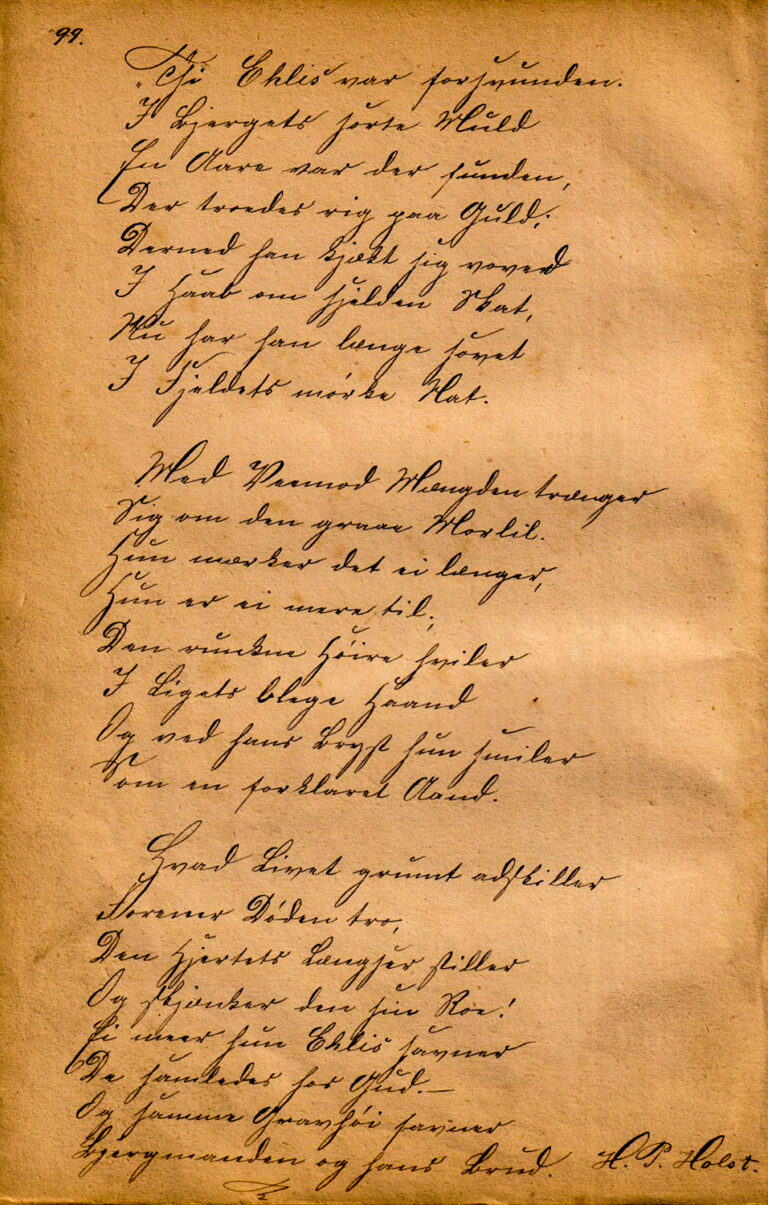 99.
"Thi Ehlis var forsvunden.
I Bjergets sorte Muld
En Aare var der funden,
Der troedes rig paa Guld;
Derned han kjækt sig voved
I Haab om sjelden Skat,
Nu har han længe sovet
I Fjeldets mörke Nat.
Med Veemod Mængden trænger
Sig om den graae Morlil.
Hun mærker det ei længer,
Hun er ei mere til;
Den runkne Höire hviler
I Ligets blege Haand
Og ved hans Bryst hun smiler
Som en forklaret Aand.
Hvad Livet grumt adskiller
Forener Döden tro,
Den Hjertets Længser stiller
Og skjænker den sin Roe!
Ei meer hun Ehlis savner
De samledes hos Gud.—
Og samme Gravhöi favner
Bjergmanden og hans Brud. H. P. Holst.